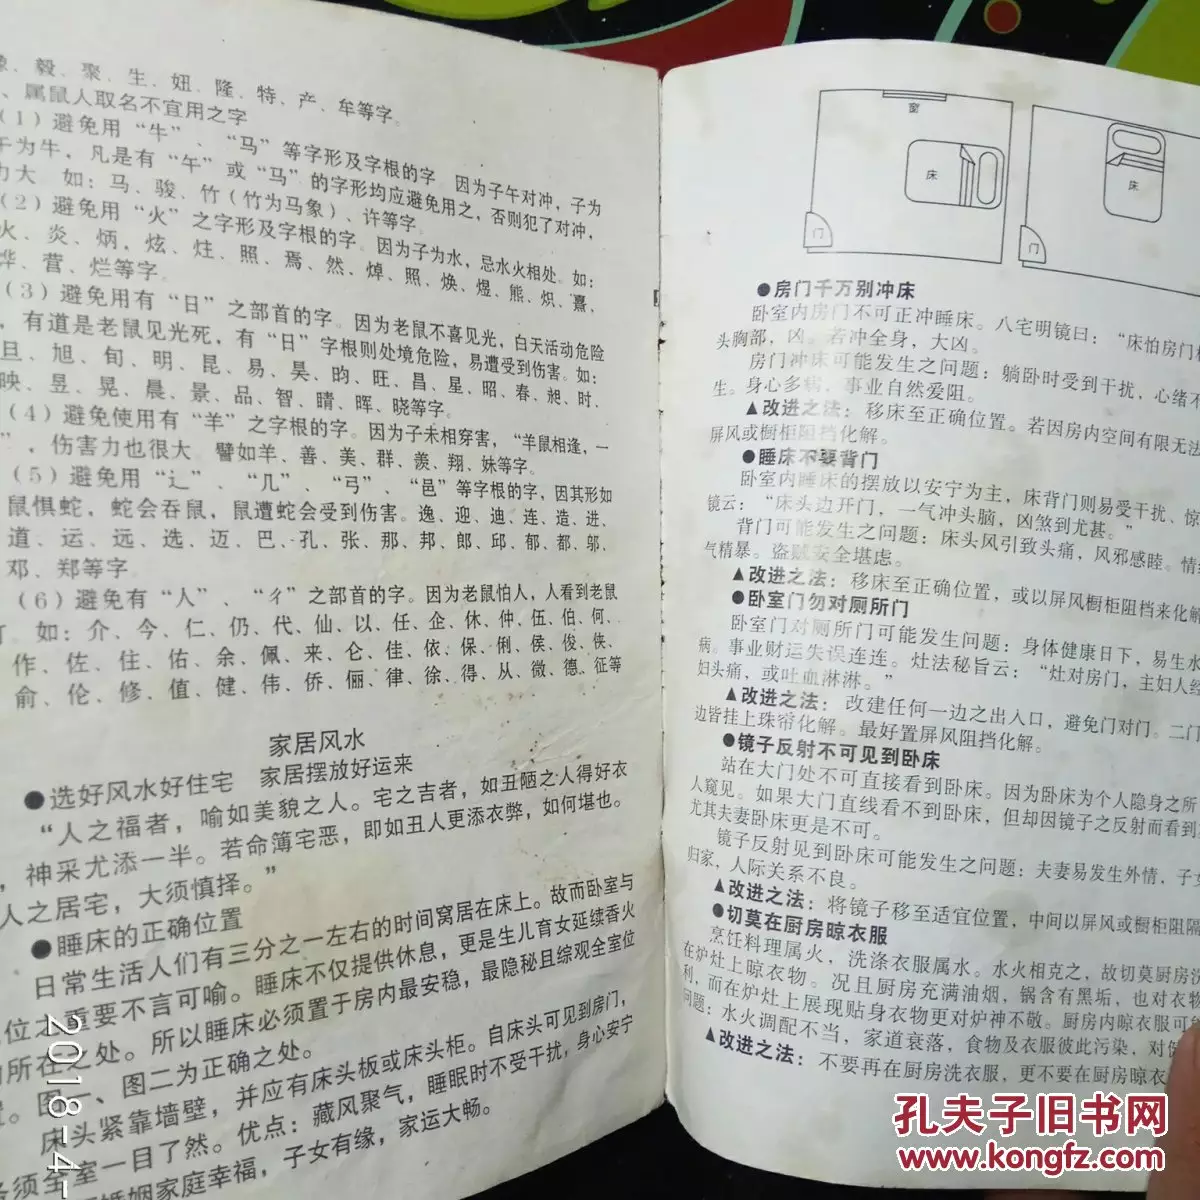 、毅、聚、生、妞、隆、特、产、牟等字。
、属鼠人取名不宜用之字
(1)避免用“牛”、“马”等字形及字根的字。因为子午对冲，子为
午为牛，凡是有“午”或“马”的字形均应避免用之，否则犯了对冲，
力大。如：马、骏、竹（竹为马象）、许等字。
(2)避免用“火”之字形及字根的字。因为子为水，忌水火相处。如：
火、炎、炳、炫、炷、照、焉、然、焯、照、焕、煜、熊、炽、熹、
烨、营、烂等字。
(3)避免用有“日”之部首的字。因为老鼠不喜见光，白天活动危险
，有道是老鼠见光死，有“日”字根则处境危险，易遭受到伤害。如：
旦、旭、旬、明、昆、易、昊、昀、旺、昌、星、昭、春、昶、时、
映、昱、晃、晨、景、品、智、晴、晖、晓等字。
(4)避免使用有“羊”之字根的字。因为子未相穿害，“羊鼠相逢，一
”，伤害力也很大。譬如羊、善、美、群、羡、翔、妹等字。
(5)避免用“辶”、“几”、“弓”、“邑”等字根的字，因其形如
鼠惧蛇，蛇会吞鼠，鼠遭蛇会受到伤害。逸、迎、迪、连、造、进、
道、运、远、选、迈、巴、孔、张、那、邦、郎、邱、郁、都、邬、
邓、郑等字。
(6)避免有“人”、“彳”之部首的字。因为老鼠怕人，人看到老鼠
打。如：介、今、仁、仍、代、仙、以、任、企、休、仲、伍、伯、何、
作、佐、住、佑、余、佩、来、仑、佳、依、保、俐、侯、俊、侠、
俞、伦、修、值、健、伟、侨、俪、律、徐、得、从、微、德、征等
家居风水
●选好风水好住宅 家居摆放好运来
“人之福者，喻如美貌之人。宅之吉者，如丑陋之人得好衣
，神采尤添一半。若命簿宅恶，即如丑人更添衣弊，如何堪也。
人之居宅，大须慎择。”
●睡床的正确位置
日常生活人们有三分之一左右的时间窝居在床上。故而卧室与
位之重要不言可喻。睡床不仅提供休息，更是生儿育女延续香火
的所在之处。所以睡床必须置于房内最安稳，最隐秘且综观全室位
。图一、图二为正确之处。
床头紧靠墙壁，并应有床头板或床头柜。自床头可见到房门，
须全室一目了然。优点：藏风聚气，睡眠时不受干扰，身心安宁
婚姻家庭幸福，子女有缘，家运大畅。
窗
床
门
床
门
●房门千万别冲床
卧室内房门不可正冲睡床。八宅明镜曰：“床怕房门
头胸部，凶。若冲全身，大凶。
房门冲床可能发生之问题：躺卧时受到干扰，心绪不
生。身心多病，事业自然爱阻。
▲改进之法：移床至正确位置。若因房内空间有限无法
屏风或橱柜阻挡化解。
●睡床不要背门
卧室内睡床的摆放以安宁为主，床背门则易受干扰、惊
镜云：“床头边开门，一气冲头脑，凶煞到尤甚。”
背门可能发生之问题：床头风引致头痛，风邪感睦。情绪
气精暴。盗贼安全堪虑。
▲改进之法：移床至正确位置，或以屏风橱柜阻挡来化解
●卧室门勿对厕所门
卧室门对厕所门可能发生问题：身体健康日下，易生水
病。事业财运失误连连。灶法秘旨云：“灶对房门，主妇人经
妇头痛，或吐血淋淋。”
▲改进之法：改建任何一边之出入口，避免门对门。二门
边皆挂上珠帘化解。最好置屏风阻挡化解。
●镜子反射不可见到卧床
站在大门处不可直接看到卧床。因为卧床为个人隐身之所
人窥见。如果大门直线看不到卧床，但却因镜子之反射而看到
尤其夫妻卧床更是不可。
镜子反射见到卧床可能发生之问题：夫妻易发生外情，子女
归家，人际关系不良。
▲改进之法：将镜子移至适宜位置，中间以屏风或橱柜阻隔
●切莫在厨房晾衣服
烹饪料理属火，洗涤衣服属水。水火相克之，故切莫厨房洗
在炉灶上晾衣物。况且厨房充满油烟，锅含有黑垢，也对衣物
利，而在炉灶上展现贴身衣物更对炉神不敬。厨房内晾衣服可能
问题：水火调配不当，家道衰落，食物及衣服彼此污染，对健
▲改进之法：不要再在厨房洗衣服，更不要在厨房晾衣
2018-4-
孔夫子旧书网
www.kongfz.com